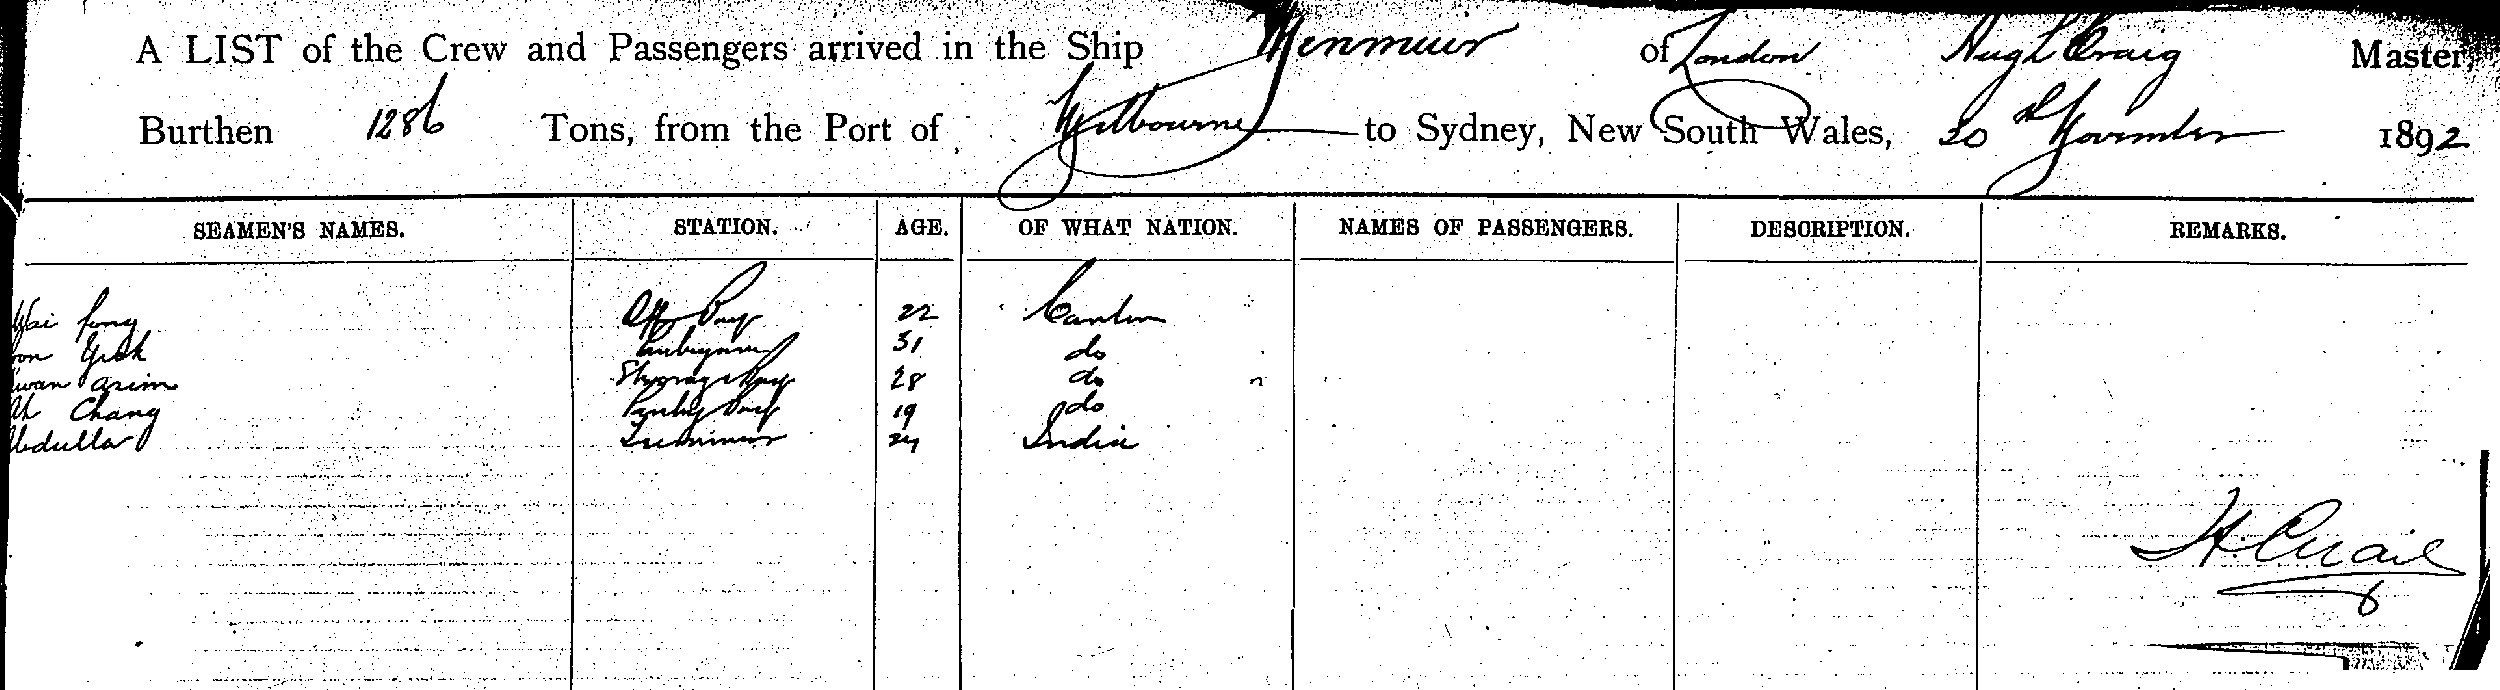 A LIST of the Crew and Passengers arrived in the Ship Menmuir of London Hugh Craig Master,
Burthen 1286 Tons, from the Port of Melbourne to Sydney, New South Wales, 20th November 1892
SEAMEN'S NAMES. STATION. AGE. OF WHAT NATION. NAMES OF PASSENGERS. DESCRIPTION. REMARKS.
fong Off Boy 22 Canton
31 do
28 do
Ah Chang Pantry Boy 19 do
Abdulla 24 India
H. Craig